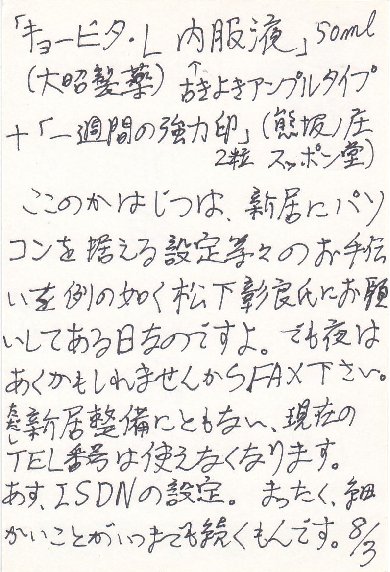 「キョービタ・L 内服液」50ml
(大昭製薬) ↑古きよきアンプルタイプ
+「一週間の強力印」(熊坂ノ庄
2粒 スッポン堂)
ここのかはじつは、新居にパソ
コンを据える設定等々のお手伝
いを例の如く松下彰良氏にお願
いしてある日なのですよ。でも夜は
あくかもしれませんからFAX下さい。
ただし新居整備にともない、現在の
TEL番号は使えなくなります。
あす、ISDNの設定。まったく、細
かいことがいつまでも続くもんです。8/3